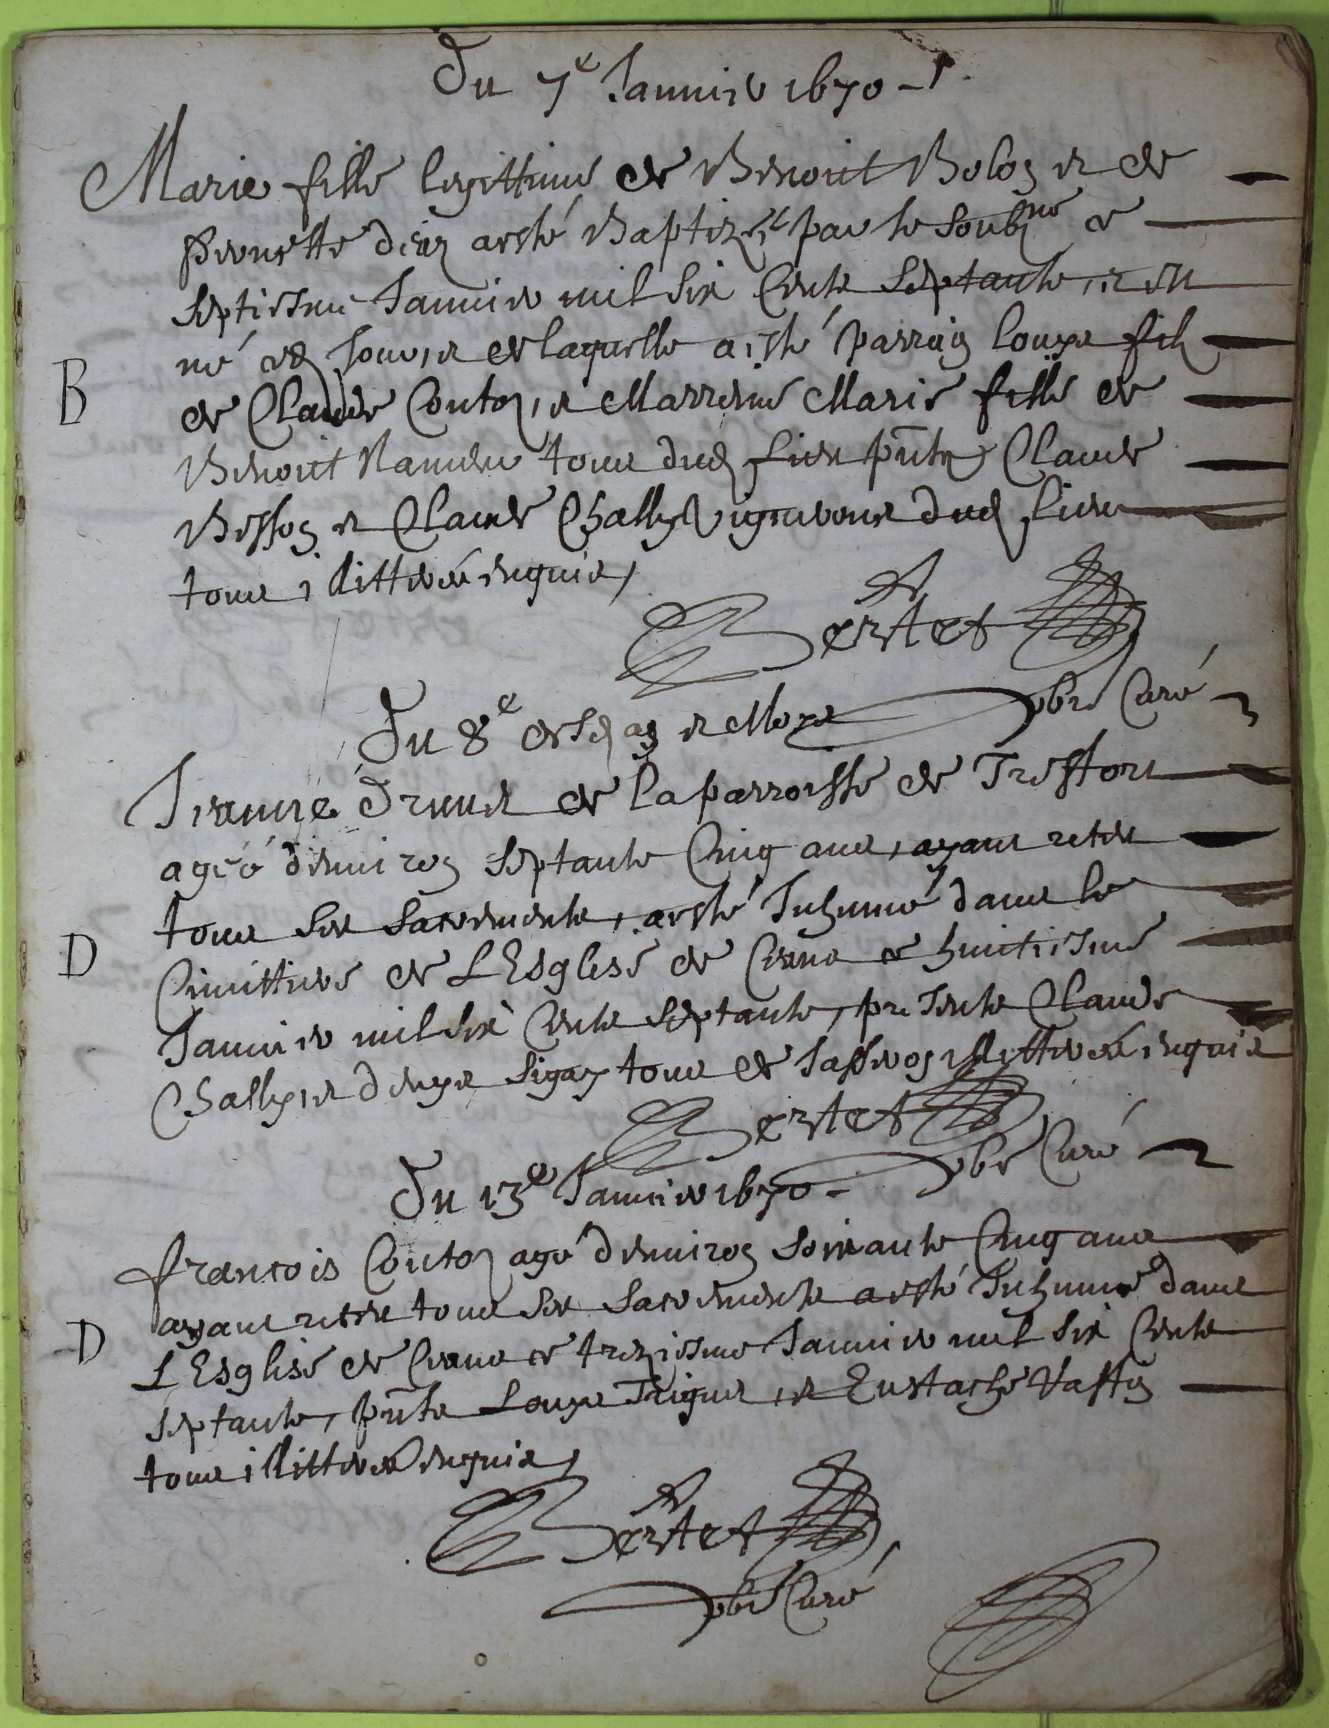 Du 7e Janvier 1670
Marie fille legittime de Benoict Bolon et de
Pernette a esté Baptizée par le soubné ce
septiesme Janvier mil six cents septante, et est
né led jour, et de laquelle a esté parrain Louys fils
B
de Claude Couton, et Marreine Marie fille de
Benoict tous dud lieu pnts Claude
Besson et Claude Chally vignerons dud lieu
tous illitterés enquis,
Bertet
pbre Curé
Du 8e desd an et Moys
Jeanne de la parroisse de Treffort
agéé d'environ septante cinq ans, ayant receu
tous ses sacrements, a esté Inhumé dans le
D
Cimittiere de L'Esglise de ce huictiesme
Janvier mil six cents septante, presents Claude
Chally, et tous de illitterés enquis
Bertet
pbre Curé
Du 13e Janvier 1670
françois Couton agé d'environ soixante cinq ans
ayant receu tous ses sacrements a esté Inhumé dans
D
L'Esglise de ce treziesme Janvier mil six cents
septante, pnts Louys et Eustache
tous illitterés enquis,
Bertet
pbre Curé